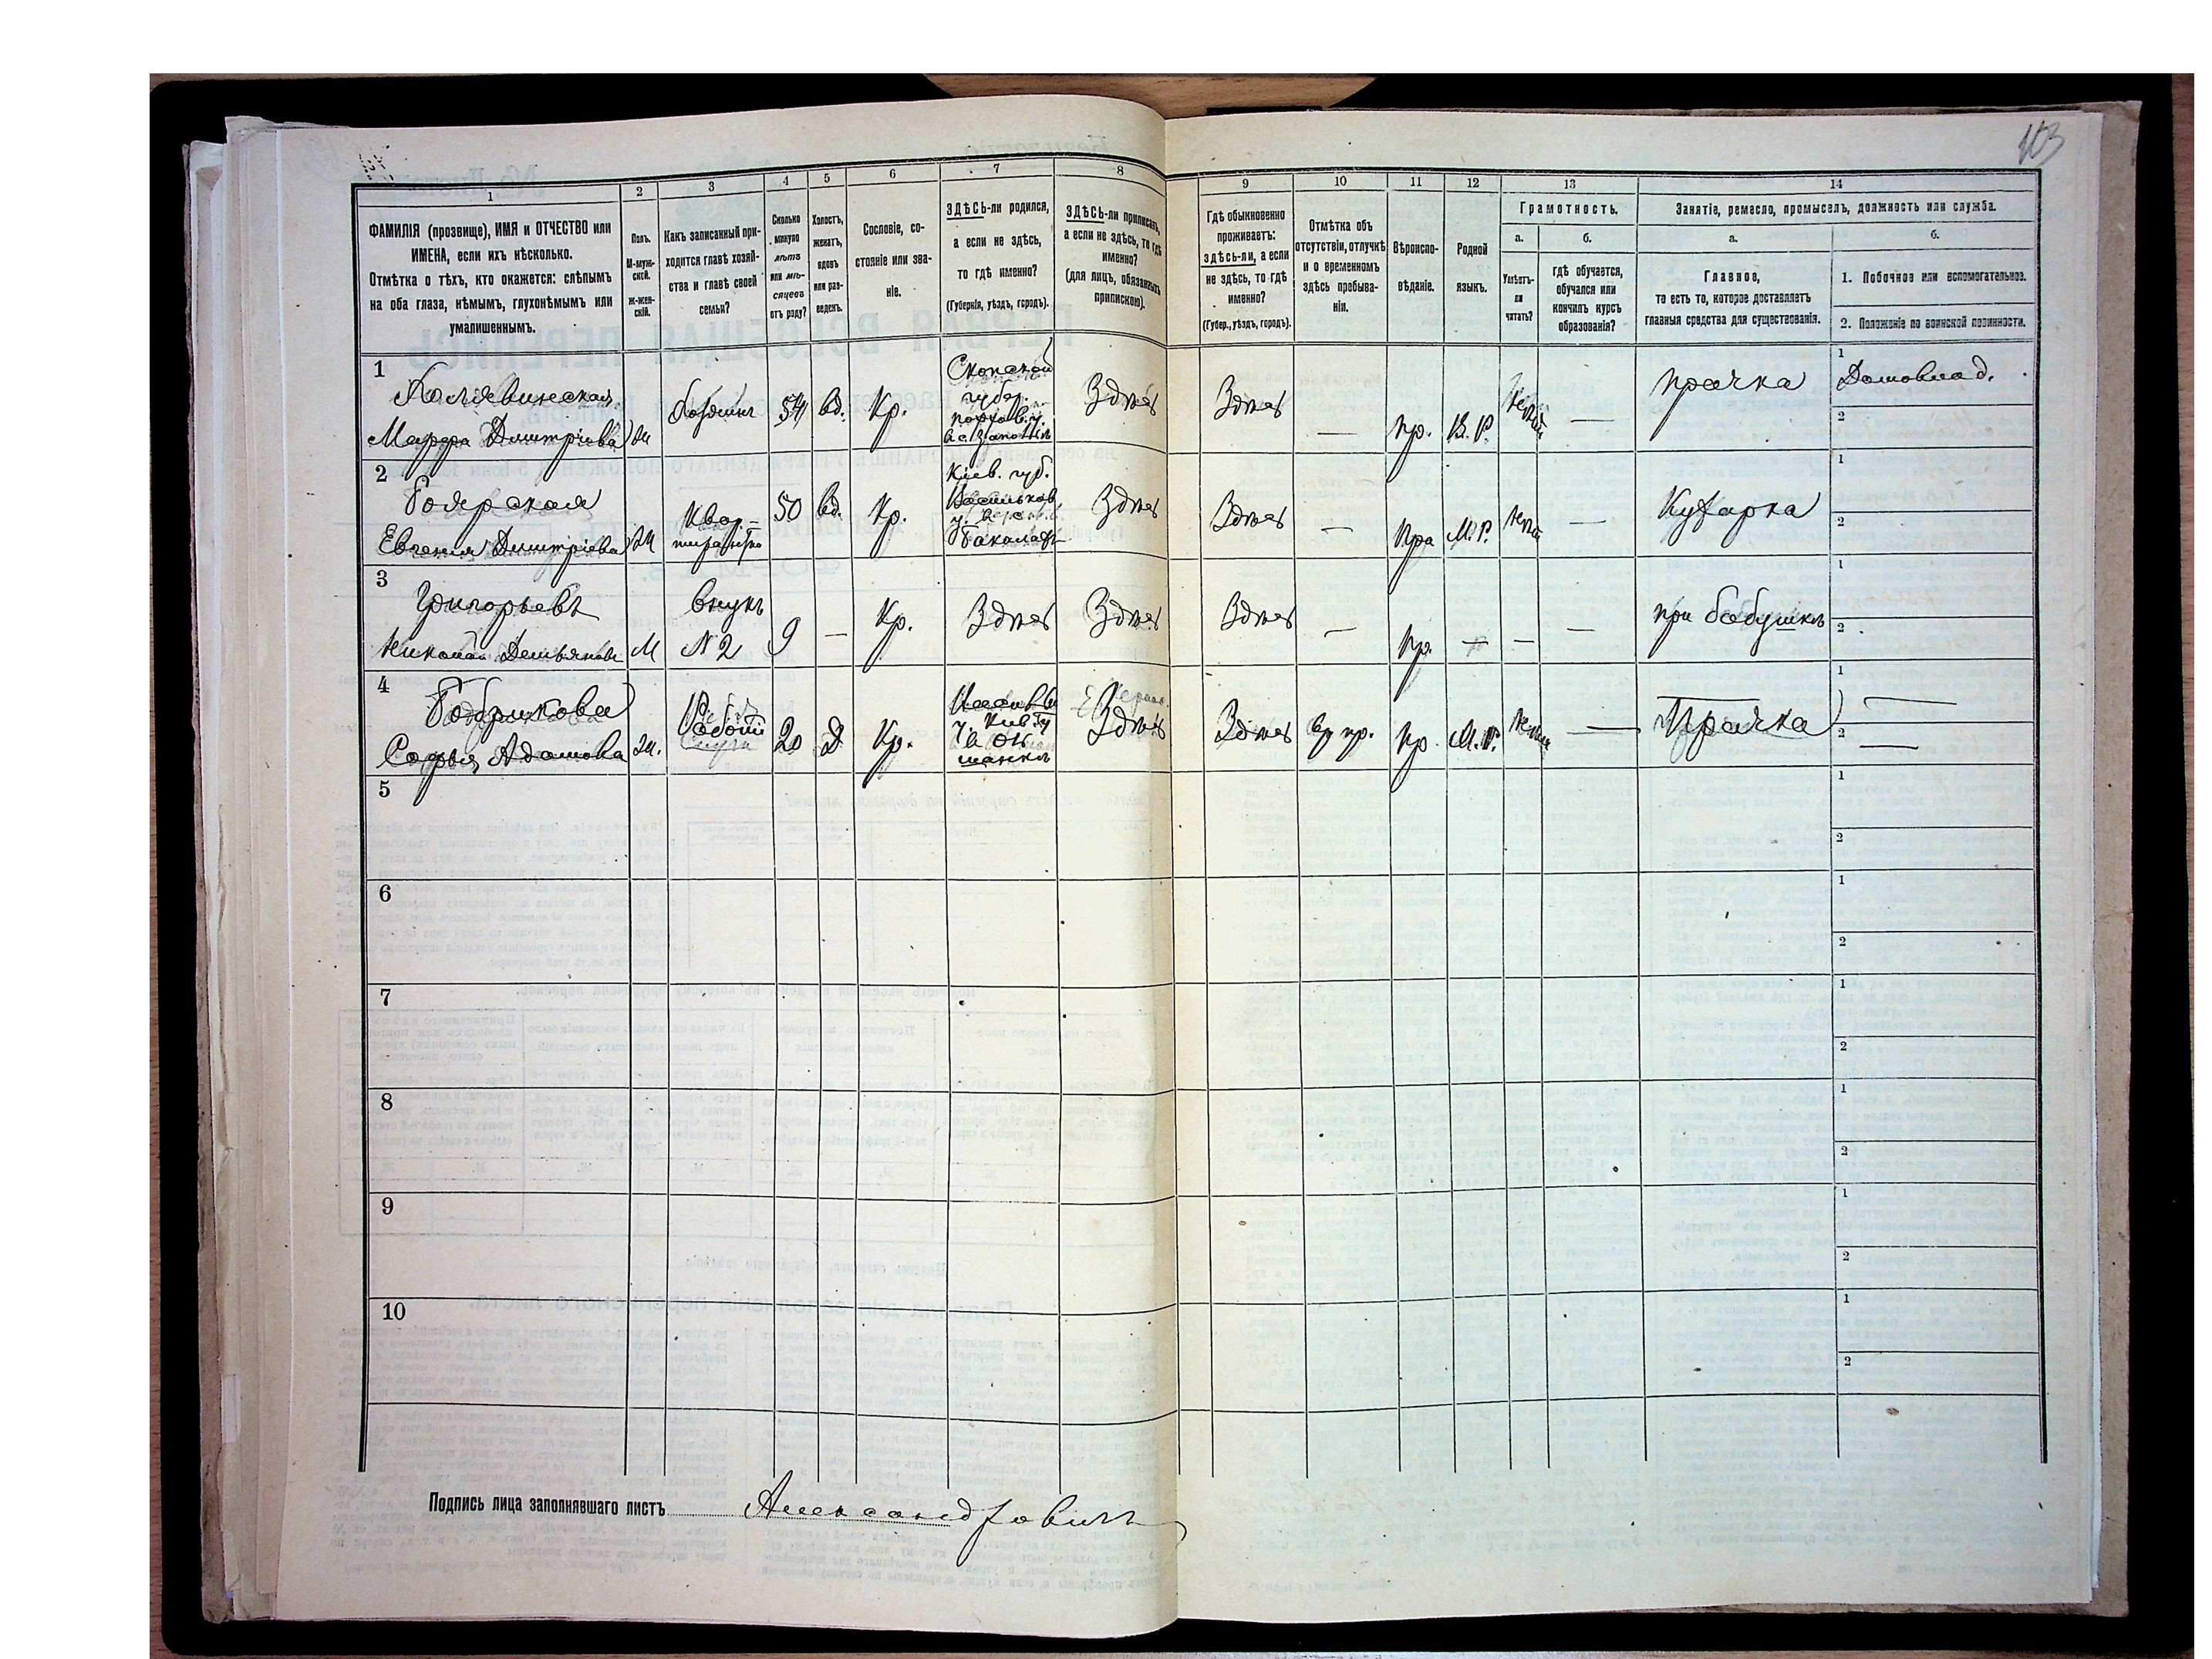 103
1 2 3 4 5 6 7 8 9 10 11 12 13 14
ФАМИЛІЯ (прозвище), ИМЯ и ОТЧЕСТВО или
ИМЕНА, если ихъ нѣсколько.
Отмѣтка о тѣхъ, кто окажется: слѣпымъ
на оба глаза, нѣмымъ, глухонѣмымъ или
умалишеннымъ.
Полъ.
М-муж-
ской.
ж-жен-
скій.
Какъ записанный при-
ходится главѣ хозяй-
ства и главѣ своей
семьи?
Сколько
минуло
лѣтъ
или мѣ-
сяцевъ
отъ роду?
Холостъ,
женатъ,
вдовъ
или раз-
веденъ.
Сословіе, со-
стояніе или зва-
ніе.
ЗДѢСЬ-ли родился,
а если не здѣсь,
то гдѣ именно?
(Губернія, уѣздъ, городъ).
ЗДѢСЬ-ли приписанъ,
а если не здѣсь, то гдѣ
именно?
(для лицъ, обязанныхъ
припискою).
Гдѣ обыкновенно
проживаетъ:
здѣсь-ли, а если
не здѣсь, то гдѣ
именно?
(Губер., уѣздъ, городъ).
Отмѣтка объ
отсутствіи, отлучкѣ
и о временномъ
здѣсь пребыва-
ніи.
Вѣроиспо-
вѣданіе.
Родной
языкъ.
Грамотность.
а.
Умѣетъ-
ли
читать?
б.
гдѣ обучается,
обучался или
кончилъ курсъ
образованія?
Занятіе, ремесло, промыселъ, должность или служба.
а.
Главное,
то есть то, которое доставляетъ
главныя средства для существованія.
б.
1. Побочное или вспомогательное.
2. Положеніе по воинской повинности.
1
Марфа Дмитріева
54 вд. Кр.
губер.
Здѣсь Здѣсь — пр. В. Р. —
прачка
1 Домовлад.
2
2
Боярская
Евгенія Дмитріева
Квар-
50 вд. Кр.
Кіев. губ.
Васильков
Здѣсь Здѣсь — Пра М. Р. —
Кухарка
1
2
3
Григорьевъ
Николай Демьяновъ М
внукъ
N 2
9 — Кр. Здѣсь Здѣсь Здѣсь — Пр. — — —
при бабушкѣ
1
2
4
Бобрикова
Софья Адамова
20 Д Кр.
Здѣсь Здѣсь Вр пр. Пр. М. Р. —
Прачка
1 —
2 —
5
1
2
6
1
2
7
1
2
8
1
2
9
1
2
10
1
2
Подпись лица заполнявшаго листъ Александровичъ